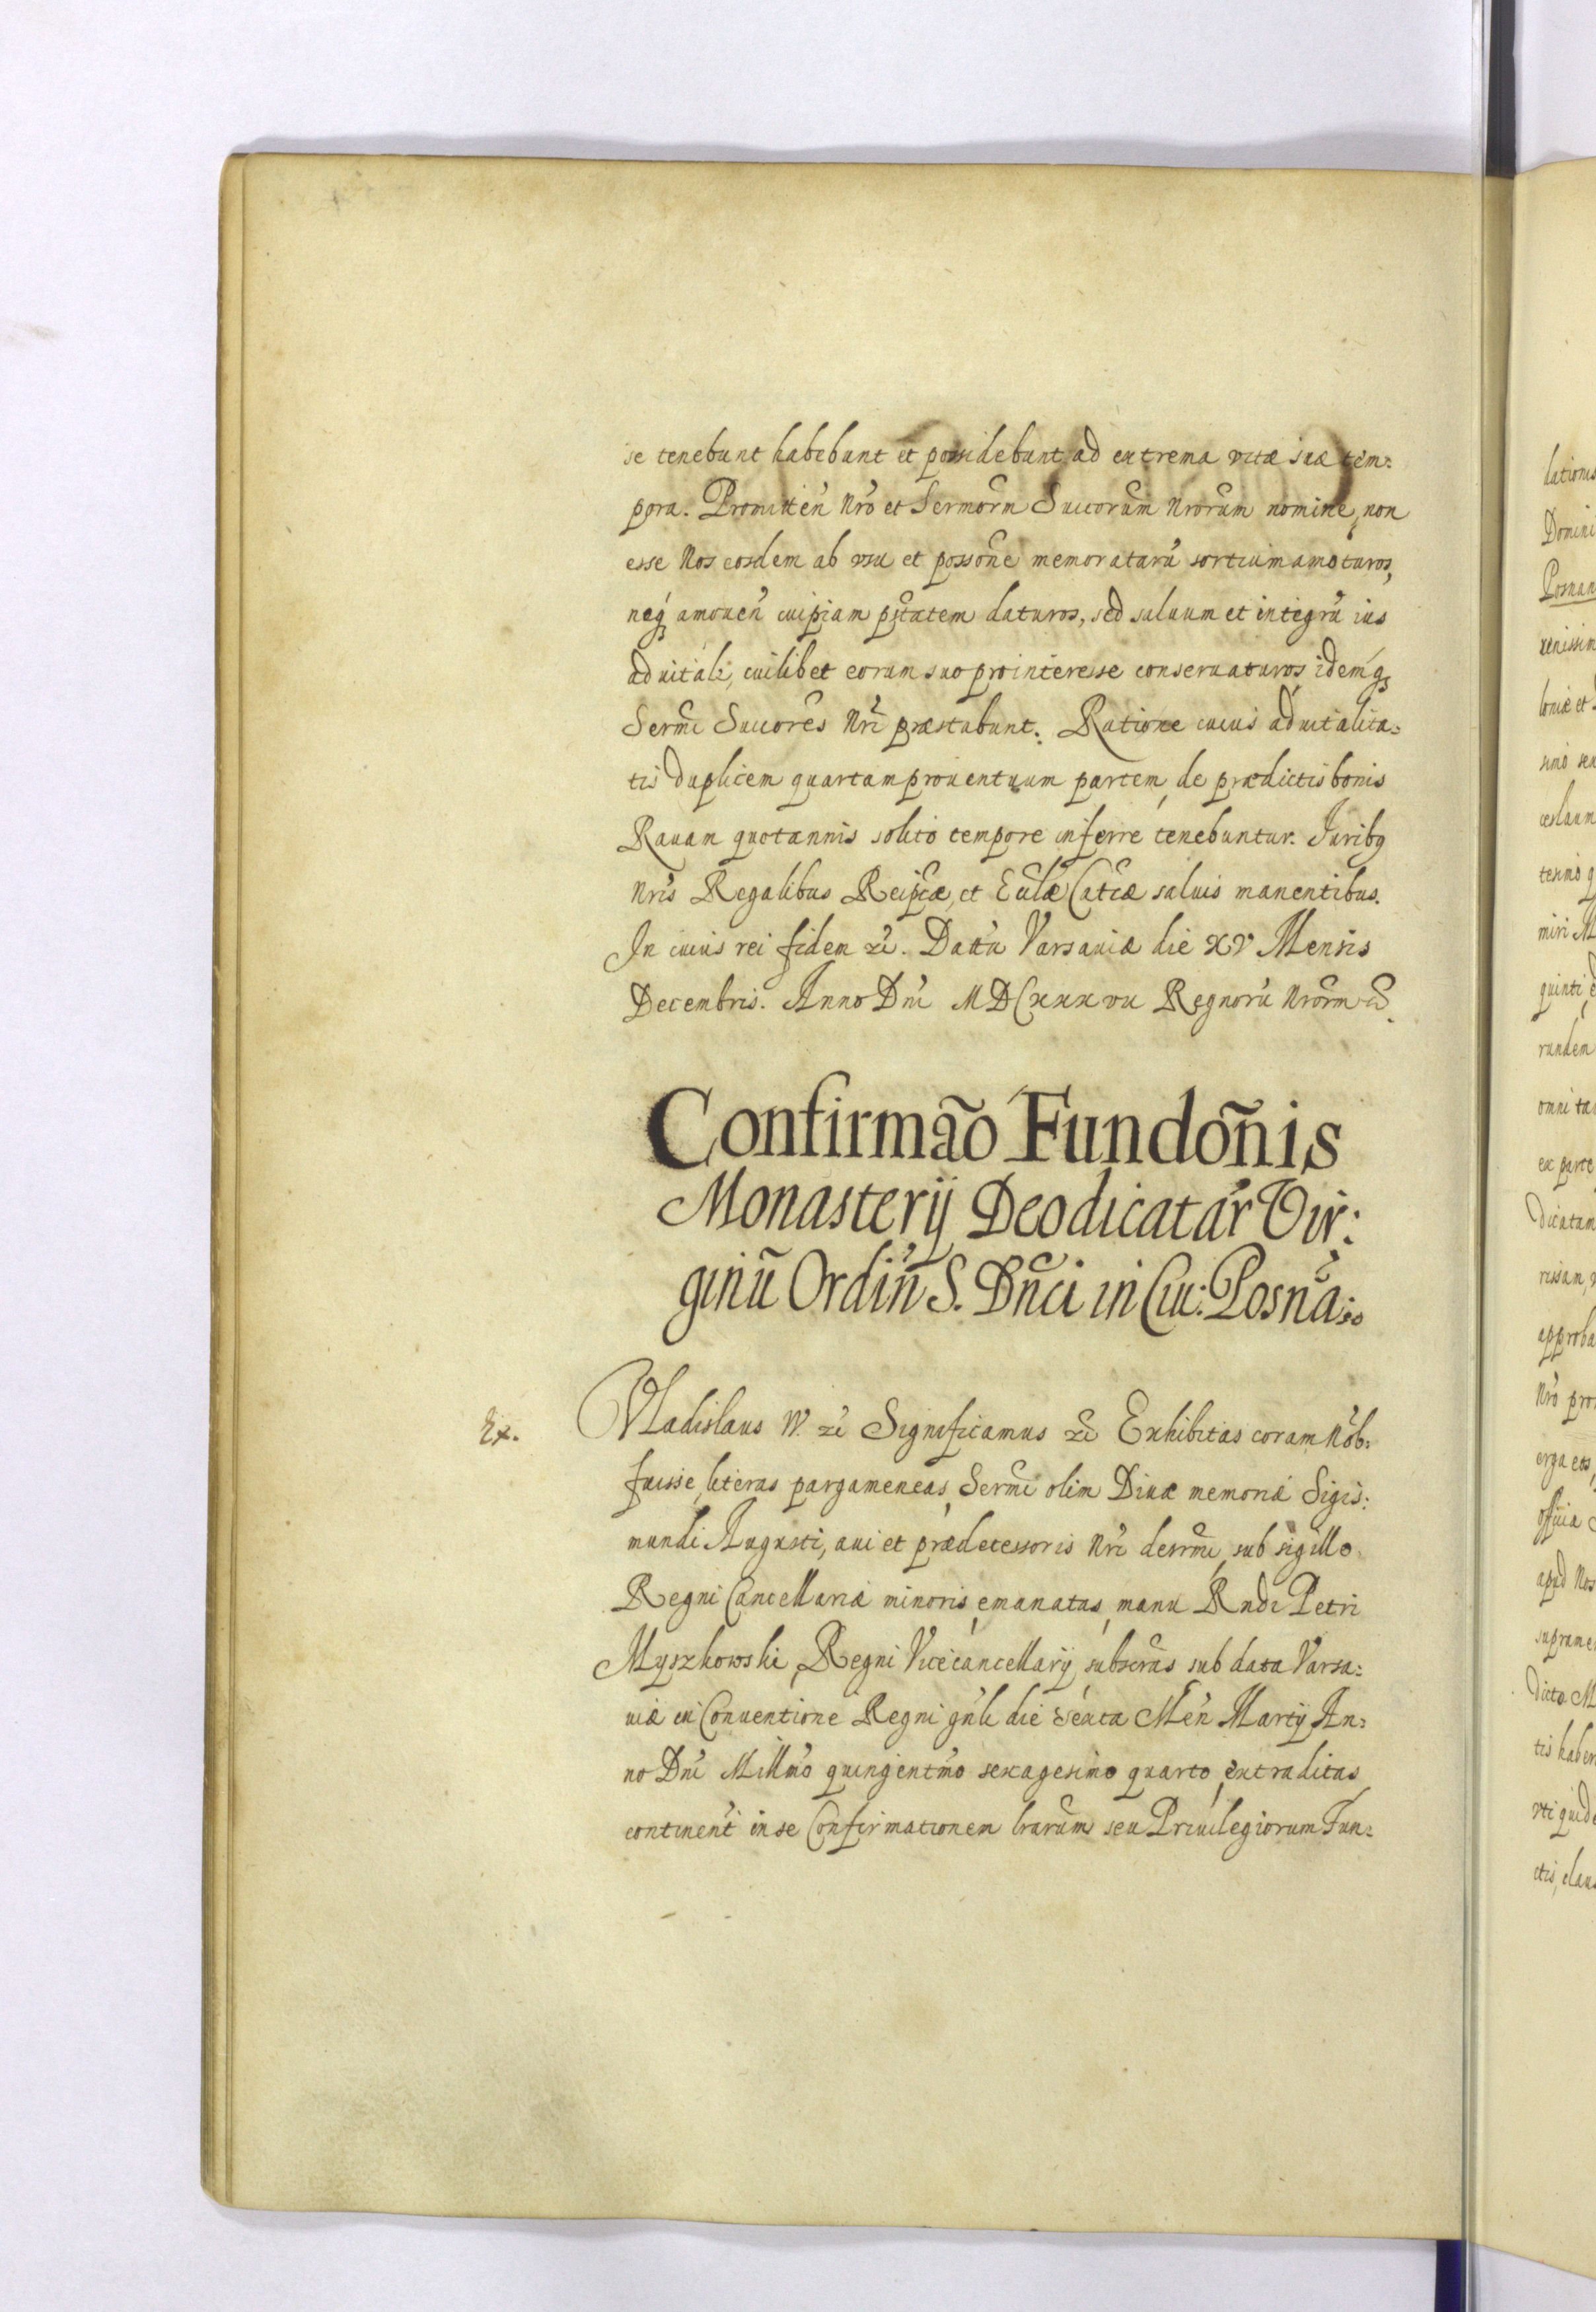 se tenebunt habebunt et possidebunt ad extrema vitæ suæ tem:
pora. Promitteñ Nrõ et Sermorm Succorum Nrorum nomine, non
esse Nos eosdem ab vsu et possone memoratarũ sortium amoturos,
neq amoueñ cuipiam ptatem daturos, sed saluum et integrũ ius
aduitale, cuilibet eorum suo pro interesse conseruaturos, idemq
Sermi Succores Nri præstabunt. Ratione cuius aduitalita:
tis duplicem quartam prouentuum partem, de prædictis bonis
Rauam quotannis solito tempore inferre tenebuntur. Juribq
Nris Regalibus Reipcæ, et Ecclæ Catcæ saluis manentibus.
In cuius rei fidem &c. Dattũ Varsauiæ die XV Mensis
Decembris. Anno Dni MDCxxxvii Regnorũ Nrorm &c.
Confirmão Fundoñis
Monasterij Deodicatar Vir:
ginũ Ordiñ S. Dñci in Ciu: Posna:
Ex. Vladislaus IV. &c Significamus &c Exhibitas coram Nob:
fuisse, literas pargameneas, Sermi olim Diuæ memoriæ Sigis:
mundi Augusti, aui et prædecessoris Nri desrmi, sub sigillo
Regni Cancellariæ minoris, emanatas, manu Rndi Petri
Myszkowski, Regni Vicecancellarij, subscras sub data Varsa:
uiæ in Conuentione Regni gñli die sexta Meñ Martij An:
no Dni Millmo quingentmo sexagesimo quarto, extraditas
continent in se Confirmationem lrarum seu Priuilegiorum Fun:
lationis
Domini
Posnan
renissim
loniæ et
simo
ceslaum
miri M
quinti,
rundem
omni
ex parte
dicatam
rissam,
approba
Nro pro
erga eos,
officia
apud Nos
suprame
dicto M
tis haben
vti quide
ctis, claus